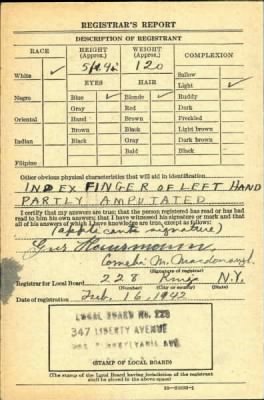 REGISTRAR'S REPORT
DESCRIPTION OF REGISTRANT
RACE
HEIGHT
(Approx.)
WEIGHT
(Approx.)
COMPLEXION
5 ft 4 in
120
White ✓
Sallow
EYES
HAIR
Light ✓
Negro
Blue ✓
Blonde ✓
Ruddy
Gray
Red
Dark
Oriental
Hazel
Brown
Freckled
Brown
Black
Light brown
Indian
Black
Gray
Dark brown
Bald
Black
Filipino
Other obvious physical characteristics that will aid in identification
INDEX FINGER OF LEFT HAND
PARTLY AMPUTATED
I certify that my answers are true; that the person registered has read or has had
read to him his own answers; that I have witnessed his signature or mark and that
all of his answers of which I have knowledge are true, except as follows:
(applicants signature)
M.
(Signature of registrar)
Registrar for Local Board 228 Kings N.Y.
Date of registration Feb. 16, 1942
LOCAL BOARD NO. 228
347 LIBERTY AVENUE
PENNSYLVANIA AVE
(STAMP OF LOCAL BOARD)
(The stamp of the Local Board having jurisdiction of the registrant
shall be placed in the above space.)